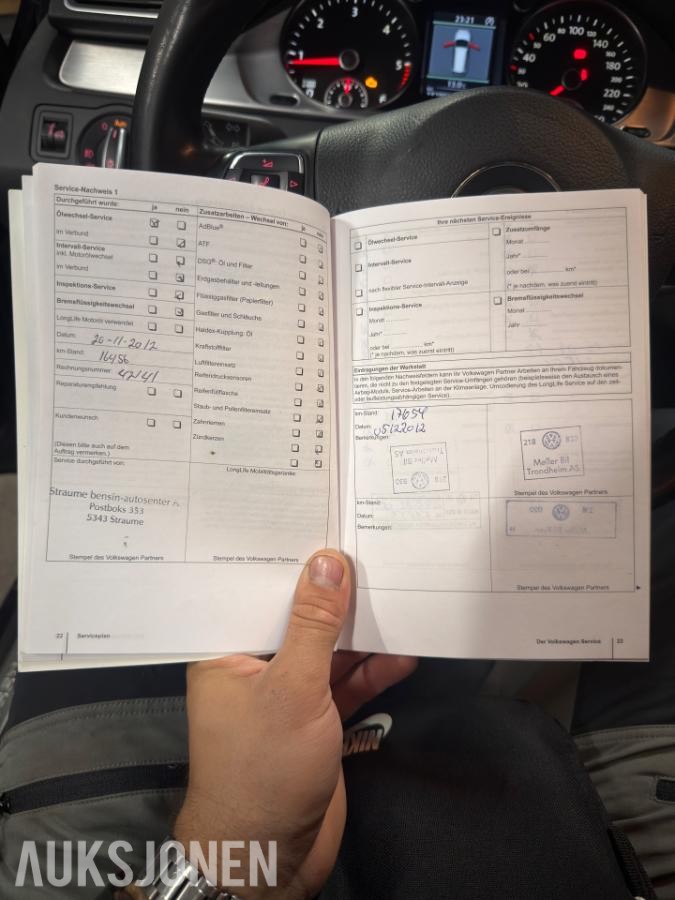 23:21
13.0
100
120
80
140
60
160
40
180
200
20
220
1
2
3
4
5
6
Auto
Service-Nachweis 1
Durchgeführt wurde: ja nein
Ölwechsel-Service
im Verbund
Intervall-Service
inkl. Motorölwechsel
im Verbund
Inspektions-Service
Bremsflüssigkeitswechsel
LongLife Motoröl verwendet
Datum: 26-11-2012
km-Stand: 16456
Rechnungsnummer: 42141
Reparaturempfehlung
Kundenwunsch
(Diesen bitte auch auf dem
Auftrag vermerken.)
Service durchgeführt von:
Straume bensin-autosenter A
Postboks 353
5343 Straume
Stempel des Volkswagen Partners
Zusatzarbeiten – Wechsel von: ja nein
AdBlue®
ATF
DSG®- Öl und Filter
Erdgasbehälter und -leitungen
Flüssiggasfilter (Papierfilter)
Gasfilter und Schläuche
Haldex-Kupplung: Öl
Kraftstofffilter
Luftfiltereinsatz
Reifendrucksensoren
Reifenfüllflasche
Staub- und Pollenfiltereinsatz
Zahnriemen
Zündkerzen
LongLife Mobilitätsgarantie:
Stempel des Volkswagen Partners
22 Serviceplan
Ihre nächsten Service-Ereignisse
Ölwechsel-Service
Intervall-Service
nach flexibler Service-Intervall-Anzeige
Inspektions-Service
Monat
Jahr*
oder bei km*
(* je nachdem, was zuerst eintritt)
Zusatzumfänge
Monat
Jahr*
oder bei km*
(* je nachdem, was zuerst eintritt)
Bremsflüssigkeitswechsel
Monat
Jahr
Eintragungen der Werkstatt
In den folgenden Nachweisfeldern kann Ihr Volkswagen Partner Arbeiten an Ihrem Fahrzeug dokumen-
tieren, die nicht zu den festgelegten Service-Umfängen gehören (beispielsweise den Austausch eines
Airbag-Moduls, Service-Arbeiten an der Klimaanlage, Umcodierung des LongLife Service auf den zeit-
oder laufleistungsabhängigen Service).
km-Stand: 17654
Datum: 05122012
Bemerkungen:
Møller Bil
Trondheim AS
218 830
218
Møller Bil
Trondheim AS
Stempel des Volkswagen Partners
km-Stand:
Datum:
Bemerkungen:
Stempel des Volkswagen Partners
Der Volkswagen Service 23
NIKE
AUKSJONEN